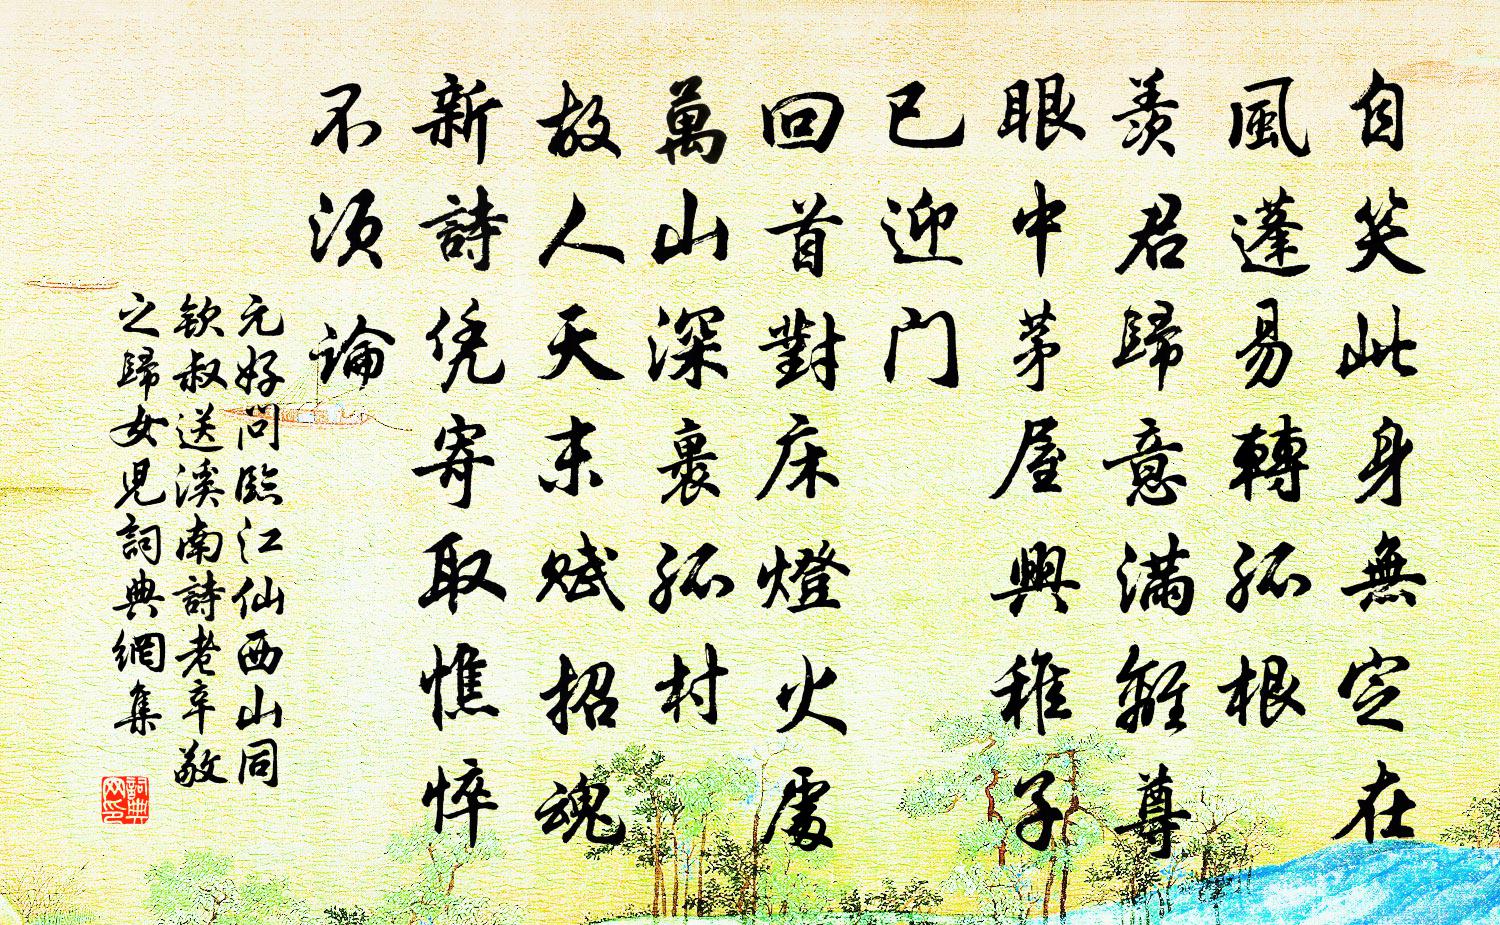 自笑此身無定在
風蓬易轉孤根
羨君歸意滿離尊
眼中茅屋興稚子
已迎门
回首對床燈火處
萬山深裹孤村
故人天末賦招魂
新詩凭寄取憔悴
不须論
元好問臨江仙西山同
欽叔送溪南詩老辛敬
之歸女児詞典網集
詞典
网印